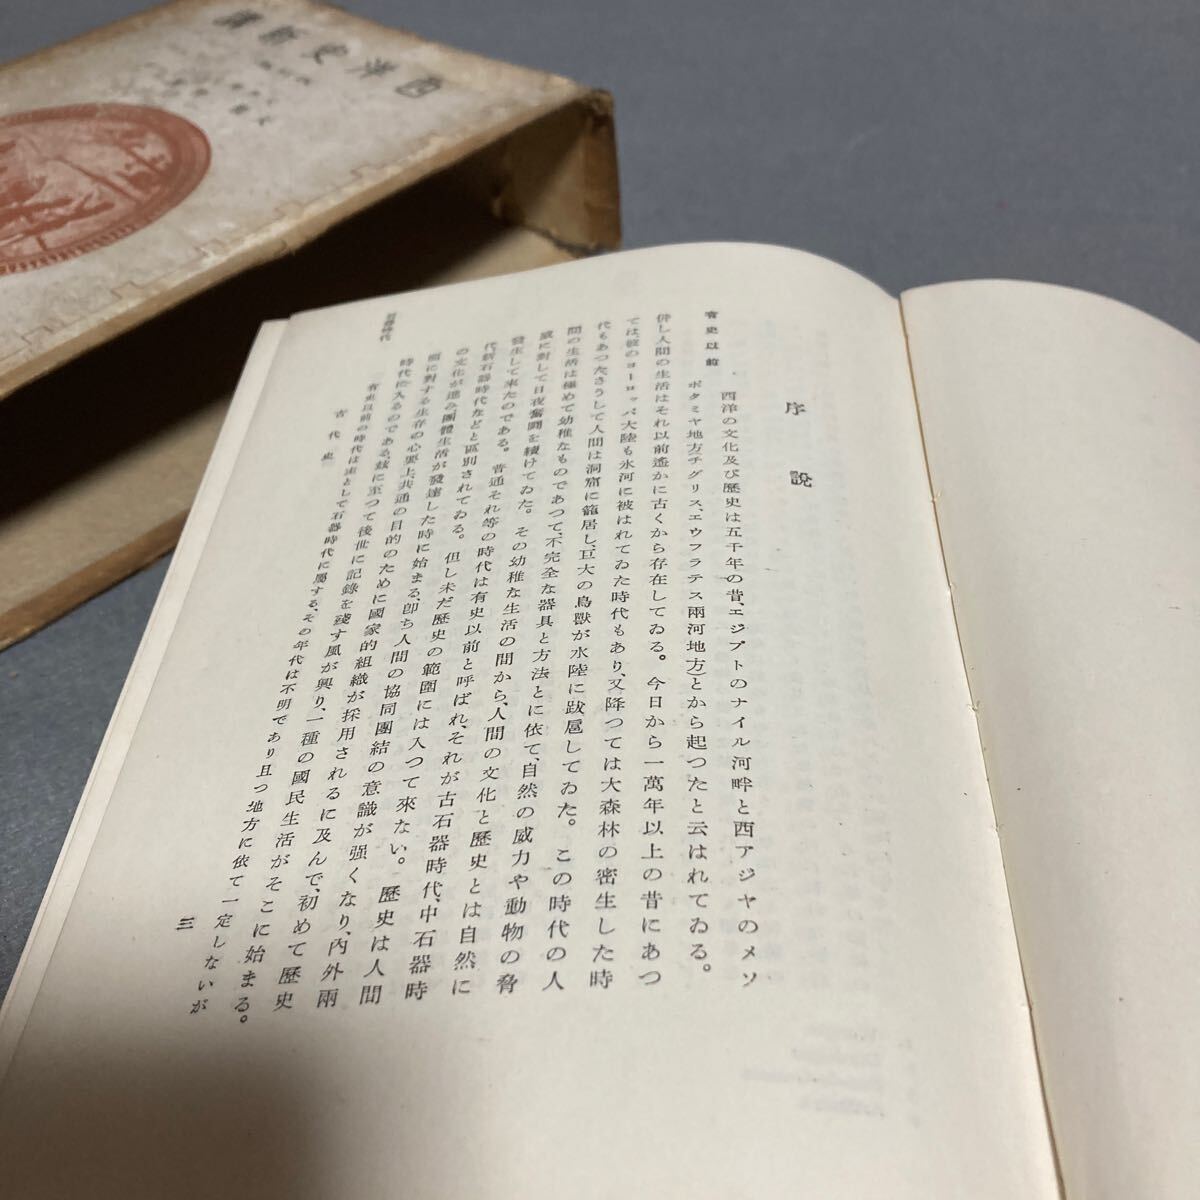 西洋史新講
序說
有史以前
西洋の文化及び歷史は五千年の昔、エジプトのナイル河畔と西アジヤのメソ
ポタミヤ地方(チグリス、エウフラテス兩河地方)とから起つたと云はれてゐる。
併し人間の生活はそれ以前遙かに古くから存在してゐる。今日から一萬年以上の昔にあつ
ては、彼のヨーロッパ大陸も氷河に被はれてゐた時代もあり、又降つては大森林の密生した時
代もあつた。さうして人間は洞窟に籠居し、巨大の鳥獸が水陸に跋扈してゐた。この時代の人
間の生活は極めて幼稚なものであつて、不完全な器具と方法とに依て、自然の威力や動物の脅
威に對して日夜奮鬪を續けてゐた。その幼稚な生活の間から、人間の文化と歷史とは自然に
發生して來たのである。普通それ等の時代は有史以前と呼ばれ、それが古石器時代、中石器時
代、新石器時代などと區別されてゐる。但し未だ歷史の範圍には入つて來ない。歷史は人間
の文化が進み、團體生活が發達した時に始まる、卽ち人間の協同團結の意識が强くなり、內外兩
面に對する生存の心要上、共通の目的のために國家的組織が採用されるに及んで、初めて歷史
時代に入るのである、玆に至つて後世に記錄を殘す風が興り、一種の國民生活がそこに始まる。
石器時代
有史以前の時代は主として石器時代に屬する、その年代は不明であり且つ地方に依て一定しないが
古代史
三